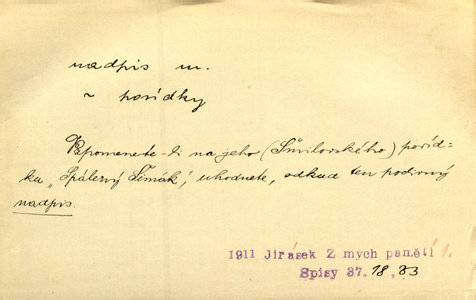 nadpis m.
~ povídky
Vzpomenete-li na jeho (Šmilovského) povíd-
ku „Spálený Šimák“, uhodnete, odkud ten podivný
nadpis.
1911 Jirásek Z mych pamětí 1.
Spisy 37. 18.83